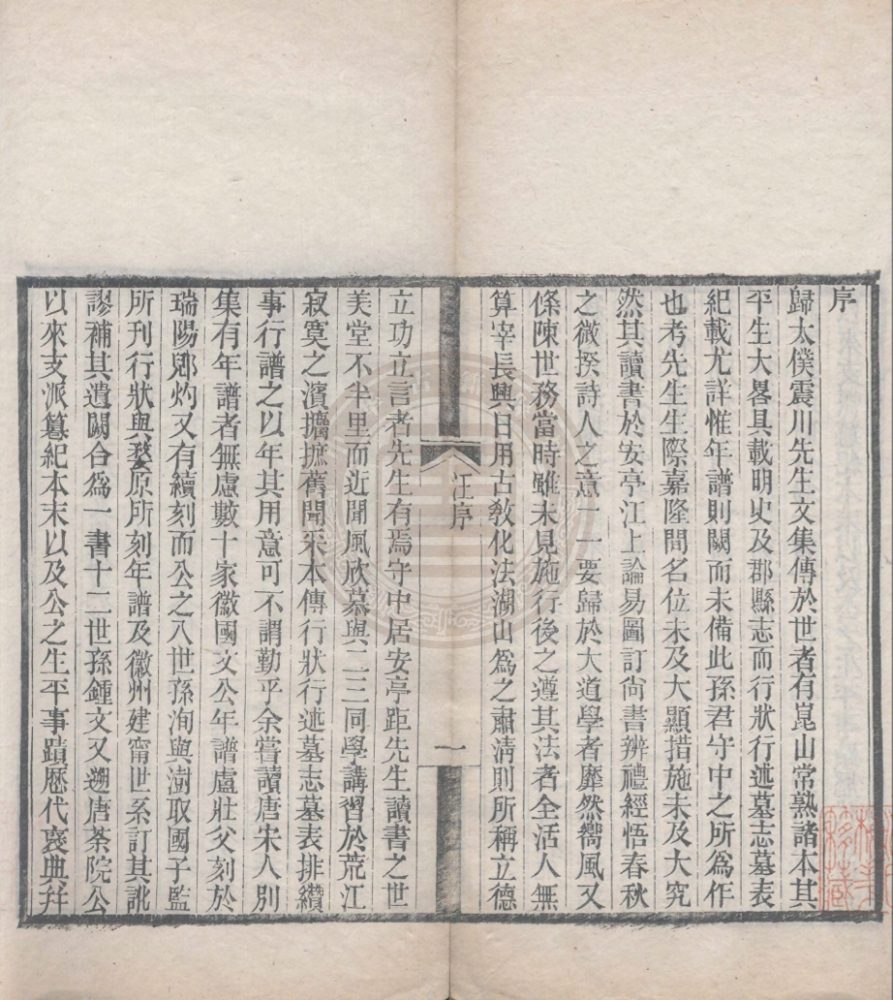 序
歸太僕震川先生文集傳於世者有崑山常熟諸本其
平生大畧具載明史及郡縣志而行狀行述墓志墓表
紀載尤詳惟年譜則闕而未備此孫君守中之所爲作
也考先生生際嘉隆間名位未及大顯措施未及大究
然其讀書於安亭江上論易圖訂尙書辨禮經悟春秋
之微揆詩人之意一一要歸於大道學者靡然嚮風又
條陳世務當時雖未見施行後之遵其法者全活人無
算宰長興日用古敎化法湖山爲之肅淸則所稱立德
汪序
一
立功立言者先生有焉守中居安亭距先生讀書之世
美堂不半里而近聞風欣慕與二三同學講習於荒江
寂寞之濱攟摭舊聞采本傳行狀行述墓志墓表排纘
事行譜之以年其用意可不謂勤乎余嘗讀唐宋人別
集有年譜者無慮數十家徽國文公年譜盧壯父刻於
瑞陽郞灼又有續刻而公之八世孫洵與澍取國子監
所刊行狀與婺原所刻年譜及徽州建甯世系訂其訛
謬補其遺闕合爲一書十二世孫鍾文又遡唐茶院公
以來支派纂紀本末以及公之生平事蹟歷代褒典幷